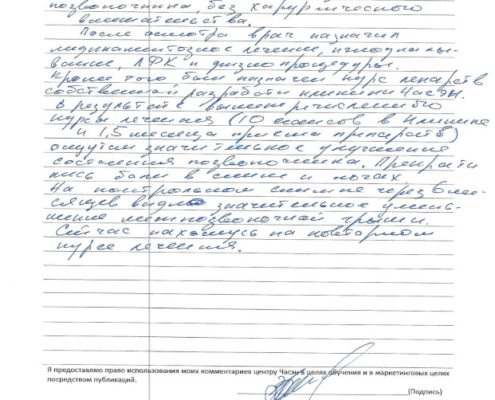 позвоночника, без хирургического
вмешательства.
После осмотра врач назначил
медикаментозное лечение, иглоукалы-
вание, ЛФК и физиопроцедуры.
Кроме того был назначен курс лекарств
собственной разработки клиники Часэн.
В результате вышеперечисленного
курса лечения (10 сеансов в клинике
и 1,5 месяца приема препаратов)
ощутил значительное улучшение
состояния позвоночника. Прекрати
лись боли в спине и ногах.
На контрольном снимке через 6 ме-
сяцев видно значительное умень-
шение межпозвоночной грыжи.
Сейчас нахожусь на повторном
курсе лечения.
Я предоставляю право использования моих комментариев центру Часэн в целях обучения и в маркетинговых целях
посредством публикаций.
(Подпись)